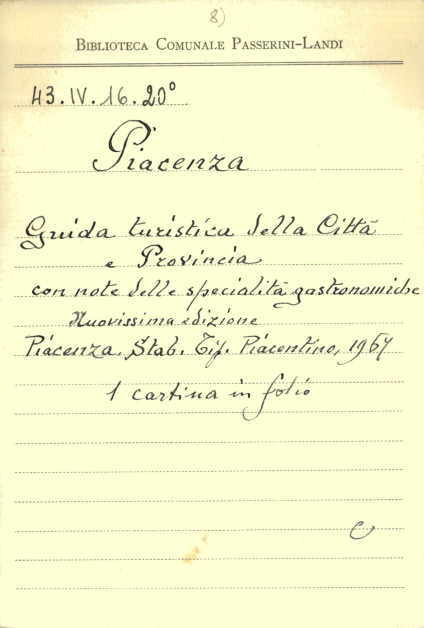 8)
Biblioteca Comunale Passerini-Landi
43.IV.16.20°
Piacenza
Guida turistica della Città
e Provincia
con note delle specialità gastronomiche
Nuovissima edizione
Piacenza, Stab. Tip. Piacentino, 1967
1 cartina in folio
C